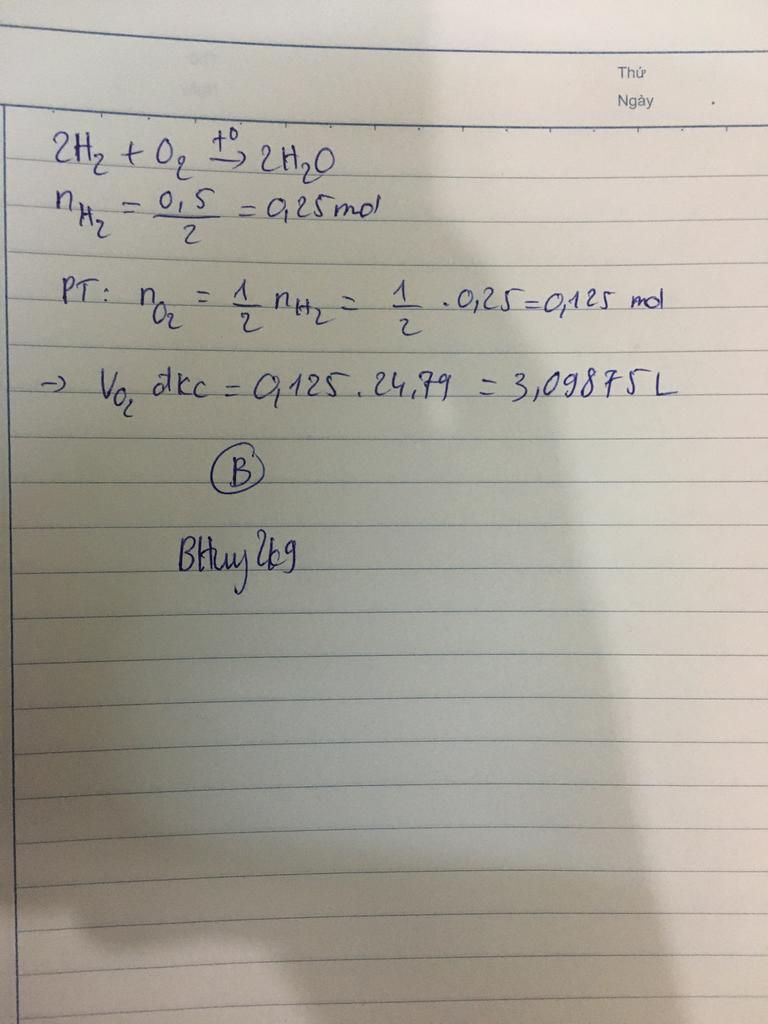 Thứ
Ngày
2H₂ + O₂ →(t⁰) 2H₂O
n_H₂ = 0,5/2 = 0,25 mol
PT: n_O₂ = 1/2 n_H₂ = 1/2 . 0,25 = 0,125 mol
→ V_O₂ đkc = 0,125 . 24,79 = 3,09875 L
B
BHuy2k9